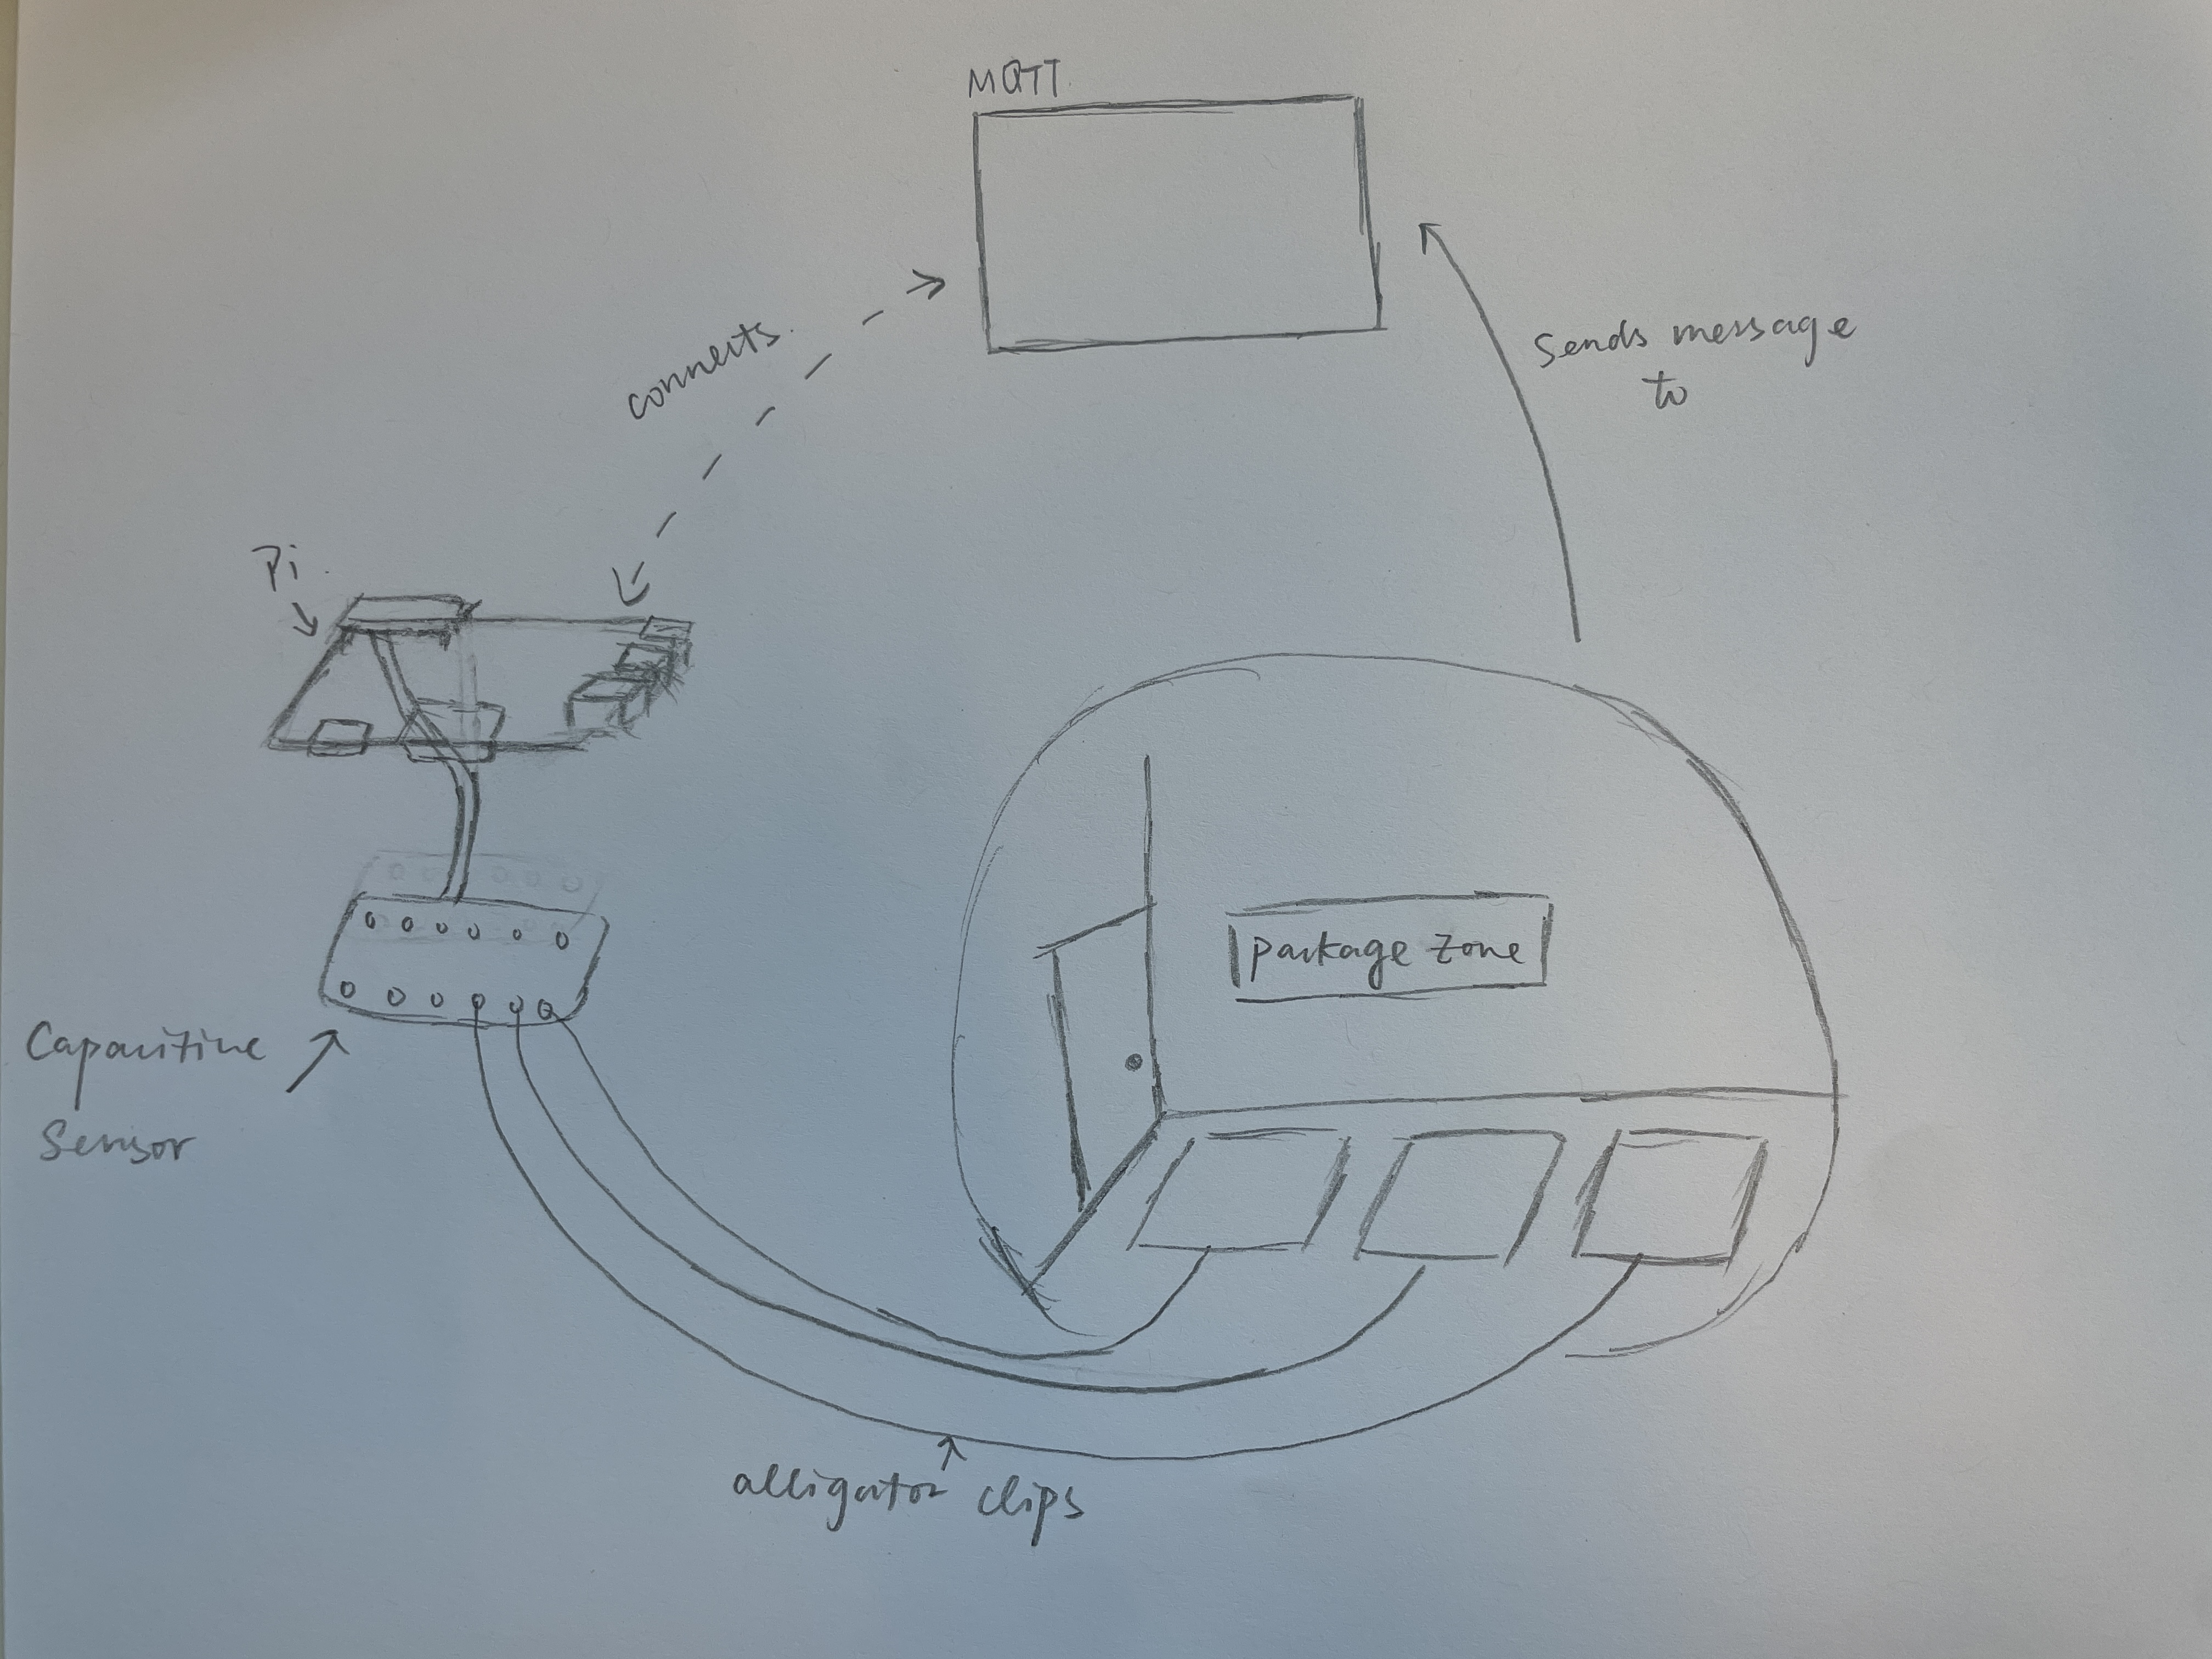 MQTT
connects
Sends message
to
Pi
package zone
Capacitive
Sensor
alligator clips